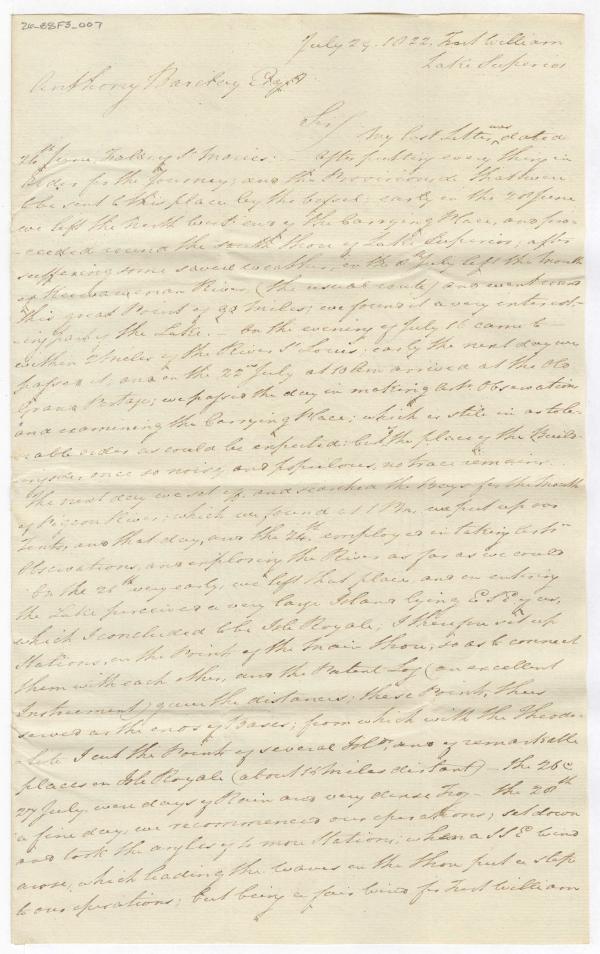 26-88F3_007
July 29. 1822. Fort William
Lake Superior
Anthony Barclay Esqr
Sir/ My last Letter was dated
26th June, Falls of St Maries. – After putting every thing in
order for the Journey, and the Provisions &c that were
to be sent to this place by the Vessel; early on the 28 June
we left the North West end of the Carrying Place, and pro-
-ceeded round the south shore of Lake Superior, after
suffering some severe weather, on the 8th July left the mouth
of the River, (the usual route) and went round
this great Point of Miles; we found it a very interest-
-ing part of the Lake. – On the evening of July 16 came to
within 2 Miles of the River St Louis; early the next day we
passed it, and on the 22nd July at 10 Am arrived at the Old
Grand Portage; we passed the day in making Astr Observations
and examining the Carrying Place; which is still in as tole-
-rable order as could be expected: but the place of the Build-
-ings &c, once so noisy and populous, no trace remains.
The next day we set off and searched the Bays for the Mouth
of Pigeon River; which we found at 1 Pm, we put up our
Tents, and that day, and the 24th employed in taking Astr
Observations, and exploring the River as far as we could
On the 25th very early, we left that place, and on entering
the Lake perceived a very large Island lying ESE of us,
which I concluded to be Isle Royale; I therefore set up
Stations, on the Points of the main shore, so as to connect
them with each other, and the Patent Log (an excellent
Instrument) gave the distances, these Points, thus
served as the ends of Bases; from which with the Theodo-
-lite I cut the Points of several Isles, and of remarkable
places on Isle Royale (about 15 Miles distant) – the 26 &
27 July were days of Rain and very dense Fog – the 28th
a fine day, we recommenced our operations; set down
and took the angles of 4 more Stations; when a SSE wind
arose, which heading the waves on the shore put a stop
to our operations; but being a fair wind for Fort William